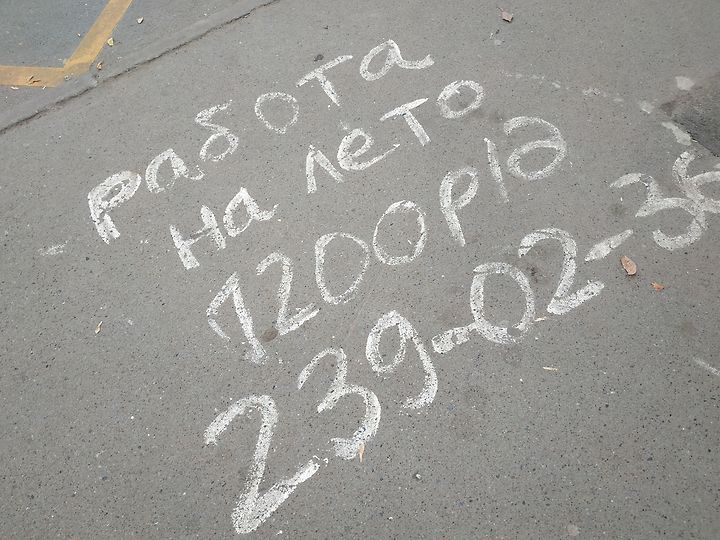 работа
на лето
1200р/д
239-02-36